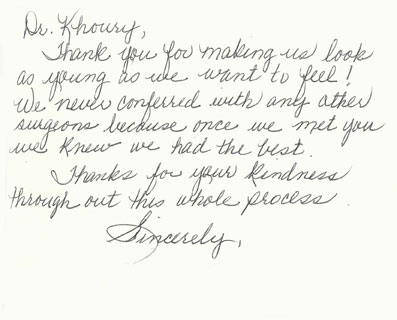 Dr. Khoury,
Thank you for making us look
as young as we want to feel!
We never conferred with any other
surgeons because once we met you
we knew we had the best.
Thanks for your kindness
through out this whole process.
Sincerely,